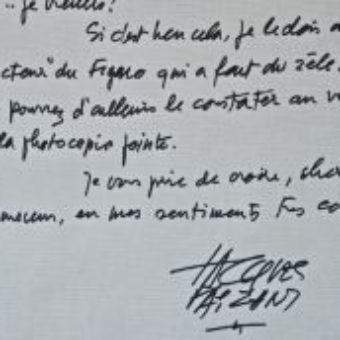 .. je
Si c'est bien cela, je le dois a
cteur" du Figaro qui a fait du zèle.
pourrez d'ailleurs le constater au v
la photocopie jointe.
Je vous prie de croire, che
monsieur, en mes sentiments très co
JACQUES